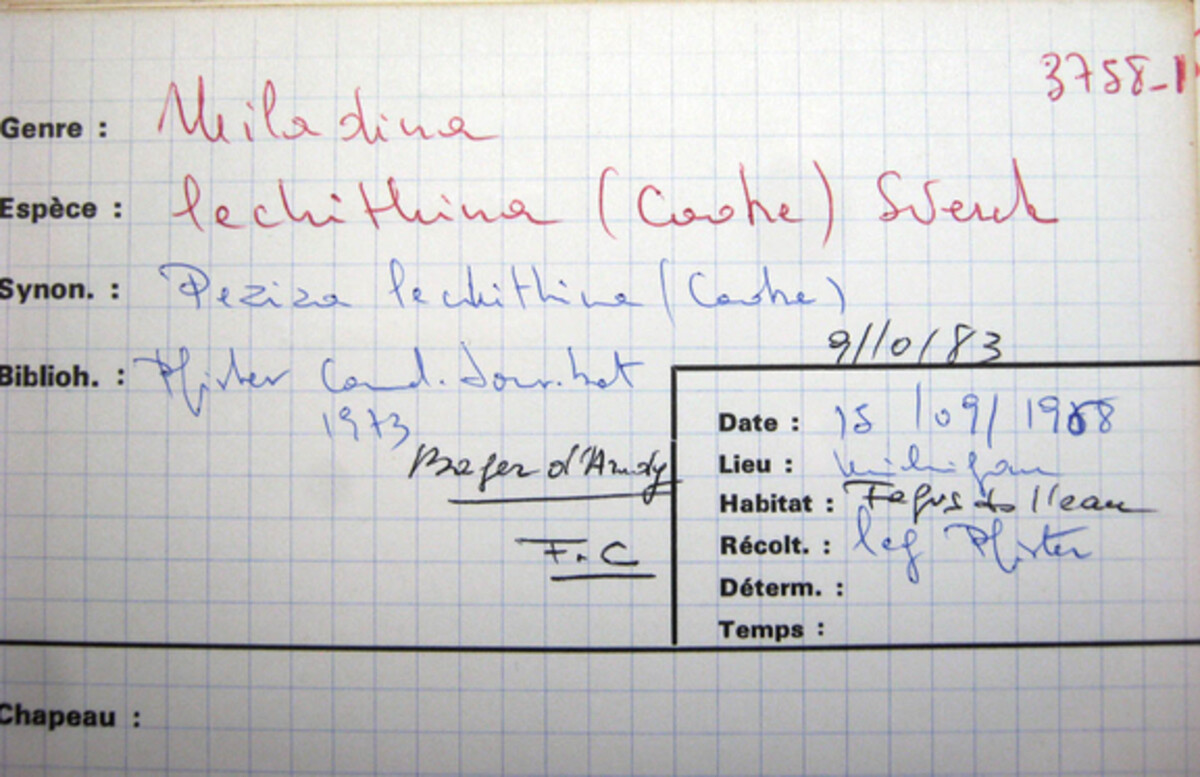 3758-1
Genre : Miladina
Espèce : lechithina (Cooke) Svrcek
Synon. : Peziza lechithina (Cooke)
9/10/83
Biblioh. : Pfister Canad. Jour. bot
1973
Bager d'Arudy
F.C
Date : 15 /09/ 1968
Lieu : Michigan
Habitat : Fagus ds l'eau
Récolt. : leg Pfister
Déterm. :
Temps :
Chapeau :